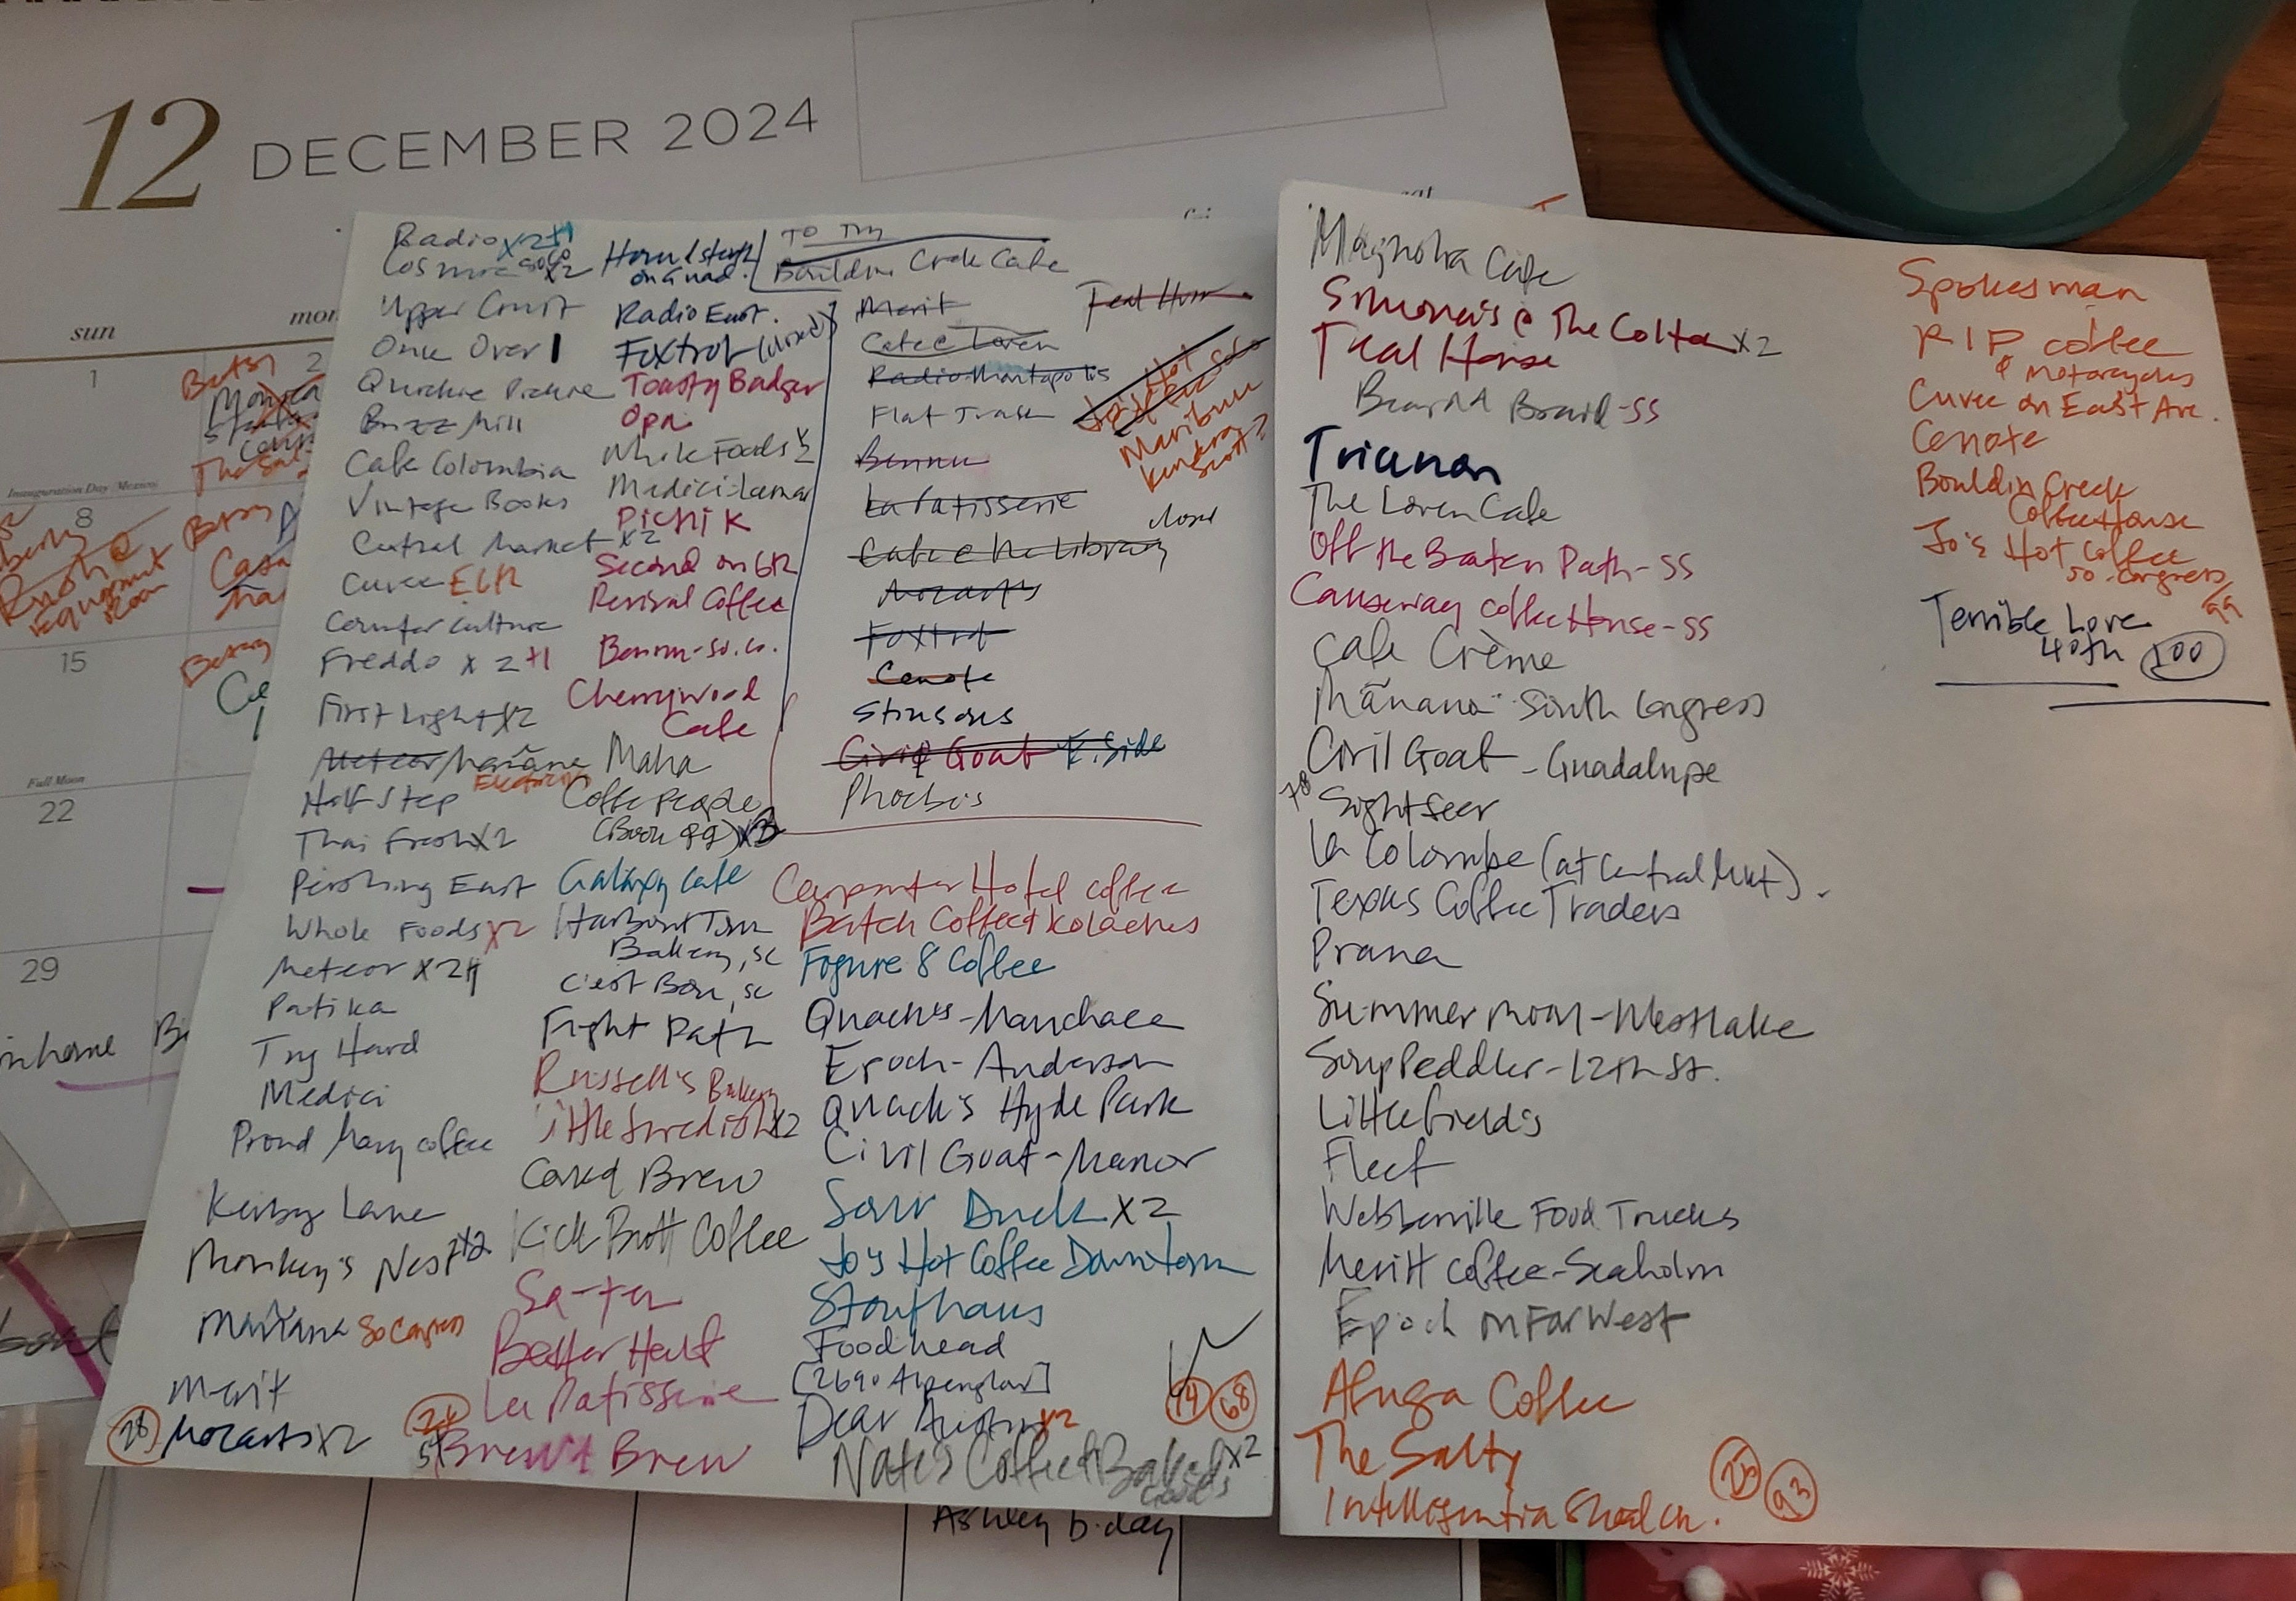 12 DECEMBER 2024
sun
mon
1
2
Betsy
Monica
The Sal
Inauguration Day (Mexico)
8
Betsy
Casa
Equipment
Room
15
Betsy
Full Moon
22
29
Ashley b.day
Radio x2 +1
Cosmic SoCo x2
Upper Crust
Once Over 1
Quickie Pickie
Buzz Mill
Cafe Colombia
Vintage Books
Central Market x2
Cuvee E6th
Counter culture
Freddo x 2 +1
First Light x2
Meteor/Mañana
Electricity
Half Step
Thai Fresh x2
Pershing East
Whole Foods x2
Meteor x2
Patika
Try Hard
Medici
Proud Mary coffee
Kerbey Lane
Monkey's Nest x2
Mañana So Congress
Merit
26 Mozarts x2
on Guad.
Radio East.
Foxtrot (closed)
Toasty Badger
Opa
Whole Foods x2
Medici-Lamar
Picnik
Second on 6th
Revival Coffee
Bennu-so.co.
Cherrywood
Cafe
Maha
Coffee People
x3
Galaxy Cafe
Harbour Town
Bakery, SC
C'est Bon, SC
Flight Path
Russell's Bakery
little Swedish x2
Caked Brew
Kick Butt Coffee
Sa-Ten
Better Half
La Patisserie
Brew & Brew
TO TRY
Bouldin Creek Cafe
Merit
Cafe @ Loren
Radio Montopolis
Flat Track
Bennu
La Patisserie
Cafe @ the Library
closed
Mozarts
Foxtrot
Cenote
Stinsons
Civil Goat E. Side
Phoebe's
Teal House
Jo's Hot
Malibuu
Kendra
Scott?
Carpenter Hotel coffee
Batch Coffee & Kolaches
Figure 8 Coffee
Quack's-Manchaca
Epoch-Anderson
Quack's Hyde Park
Civil Goat-Menor
Sour Duck x2
Jo's Hot Coffee Downtown
Stoufhaus
Foodhead
Dear Austin x2
Nate's Coffee & Baked x2
Goods
68
Magnolia Cafe
Simone's @ The Colton x2
Teal House
Beard Board-SS
Trianon
The Loren Cafe
Off the Beaten Path-SS
Causeway coffee House-SS
Cafe Crème
Mañana South Congress
Civil Goat - Guadalupe
78 Sightseer
La Colombe (at Central Mkt).
Texas Coffee Traders
Prana
Summer Moon-Westlake
Soup Peddler-12th St.
Littlefield's
Fleet
Webberville Food Trucks
Meritt coffee-Seaholm
Epoch on Far West
Afuga Coffee
The Salty
Intelligentsia Shoal Ck.
25
93
Spokesman
RIP coffee
& Motorcycles
Cuvee on East Ave.
Cenote
Bouldin Creek
Coffee House
Jo's Hot Coffee
So. Congress
99
Terrible Love
40th 100